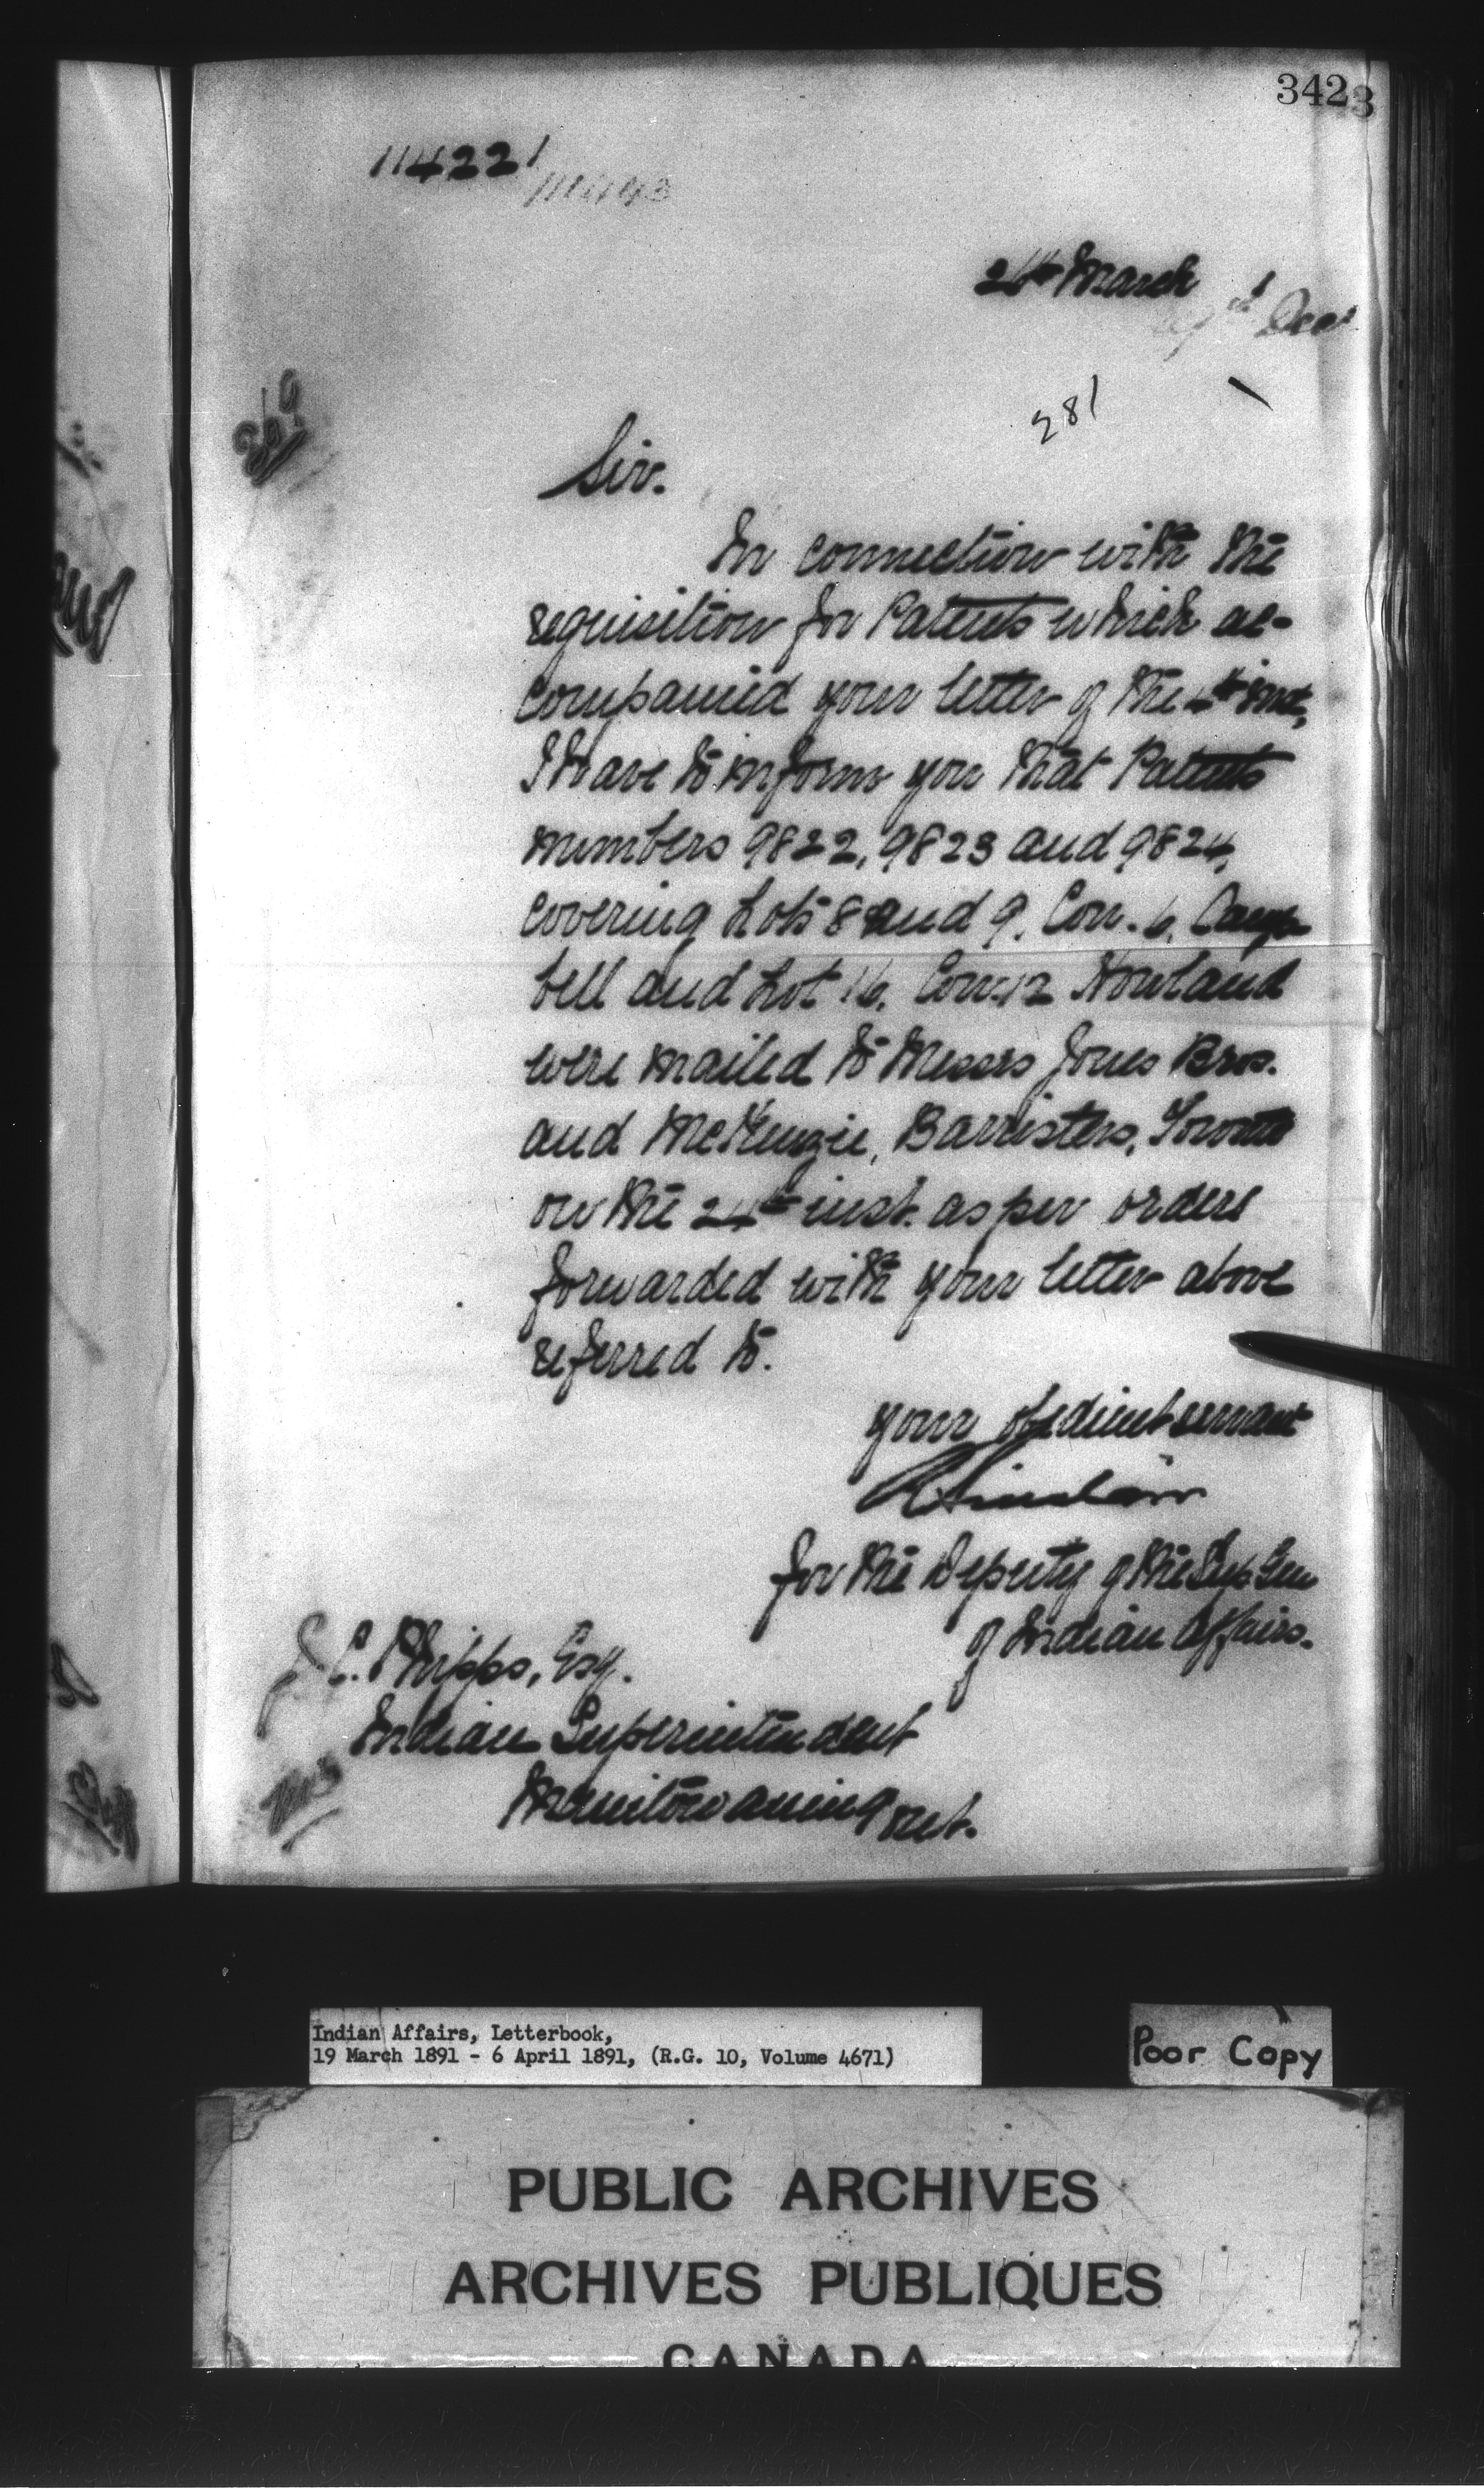 342
114221
March
281
Sir.
In connection with the
requisition for Patents which ac-
companied your letter of the 4th inst,
I have to inform you that Patents
numbers 9822, 9823 and 9824,
covering Lots 8 and 9, Con. 6, Camp
bell and Lot 16, Con. 12 Howland
were mailed to Messrs Jones Bros.
and McKenzie, Barristers, Toronto
on the 24th inst. as per orders
forwarded with your letter above
referred to.
your obedient servant
R Sinclair
for the Deputy of the Sup Gen
of Indian Affairs.
J. C. Phipps, Esq.
Indian Superintendent
Manitowaning Ont.
Indian Affairs, Letterbook,
19 March 1891 - 6 April 1891, (R.G. 10, Volume 4671)
Poor Copy
PUBLIC ARCHIVES
ARCHIVES PUBLIQUES
CANADA